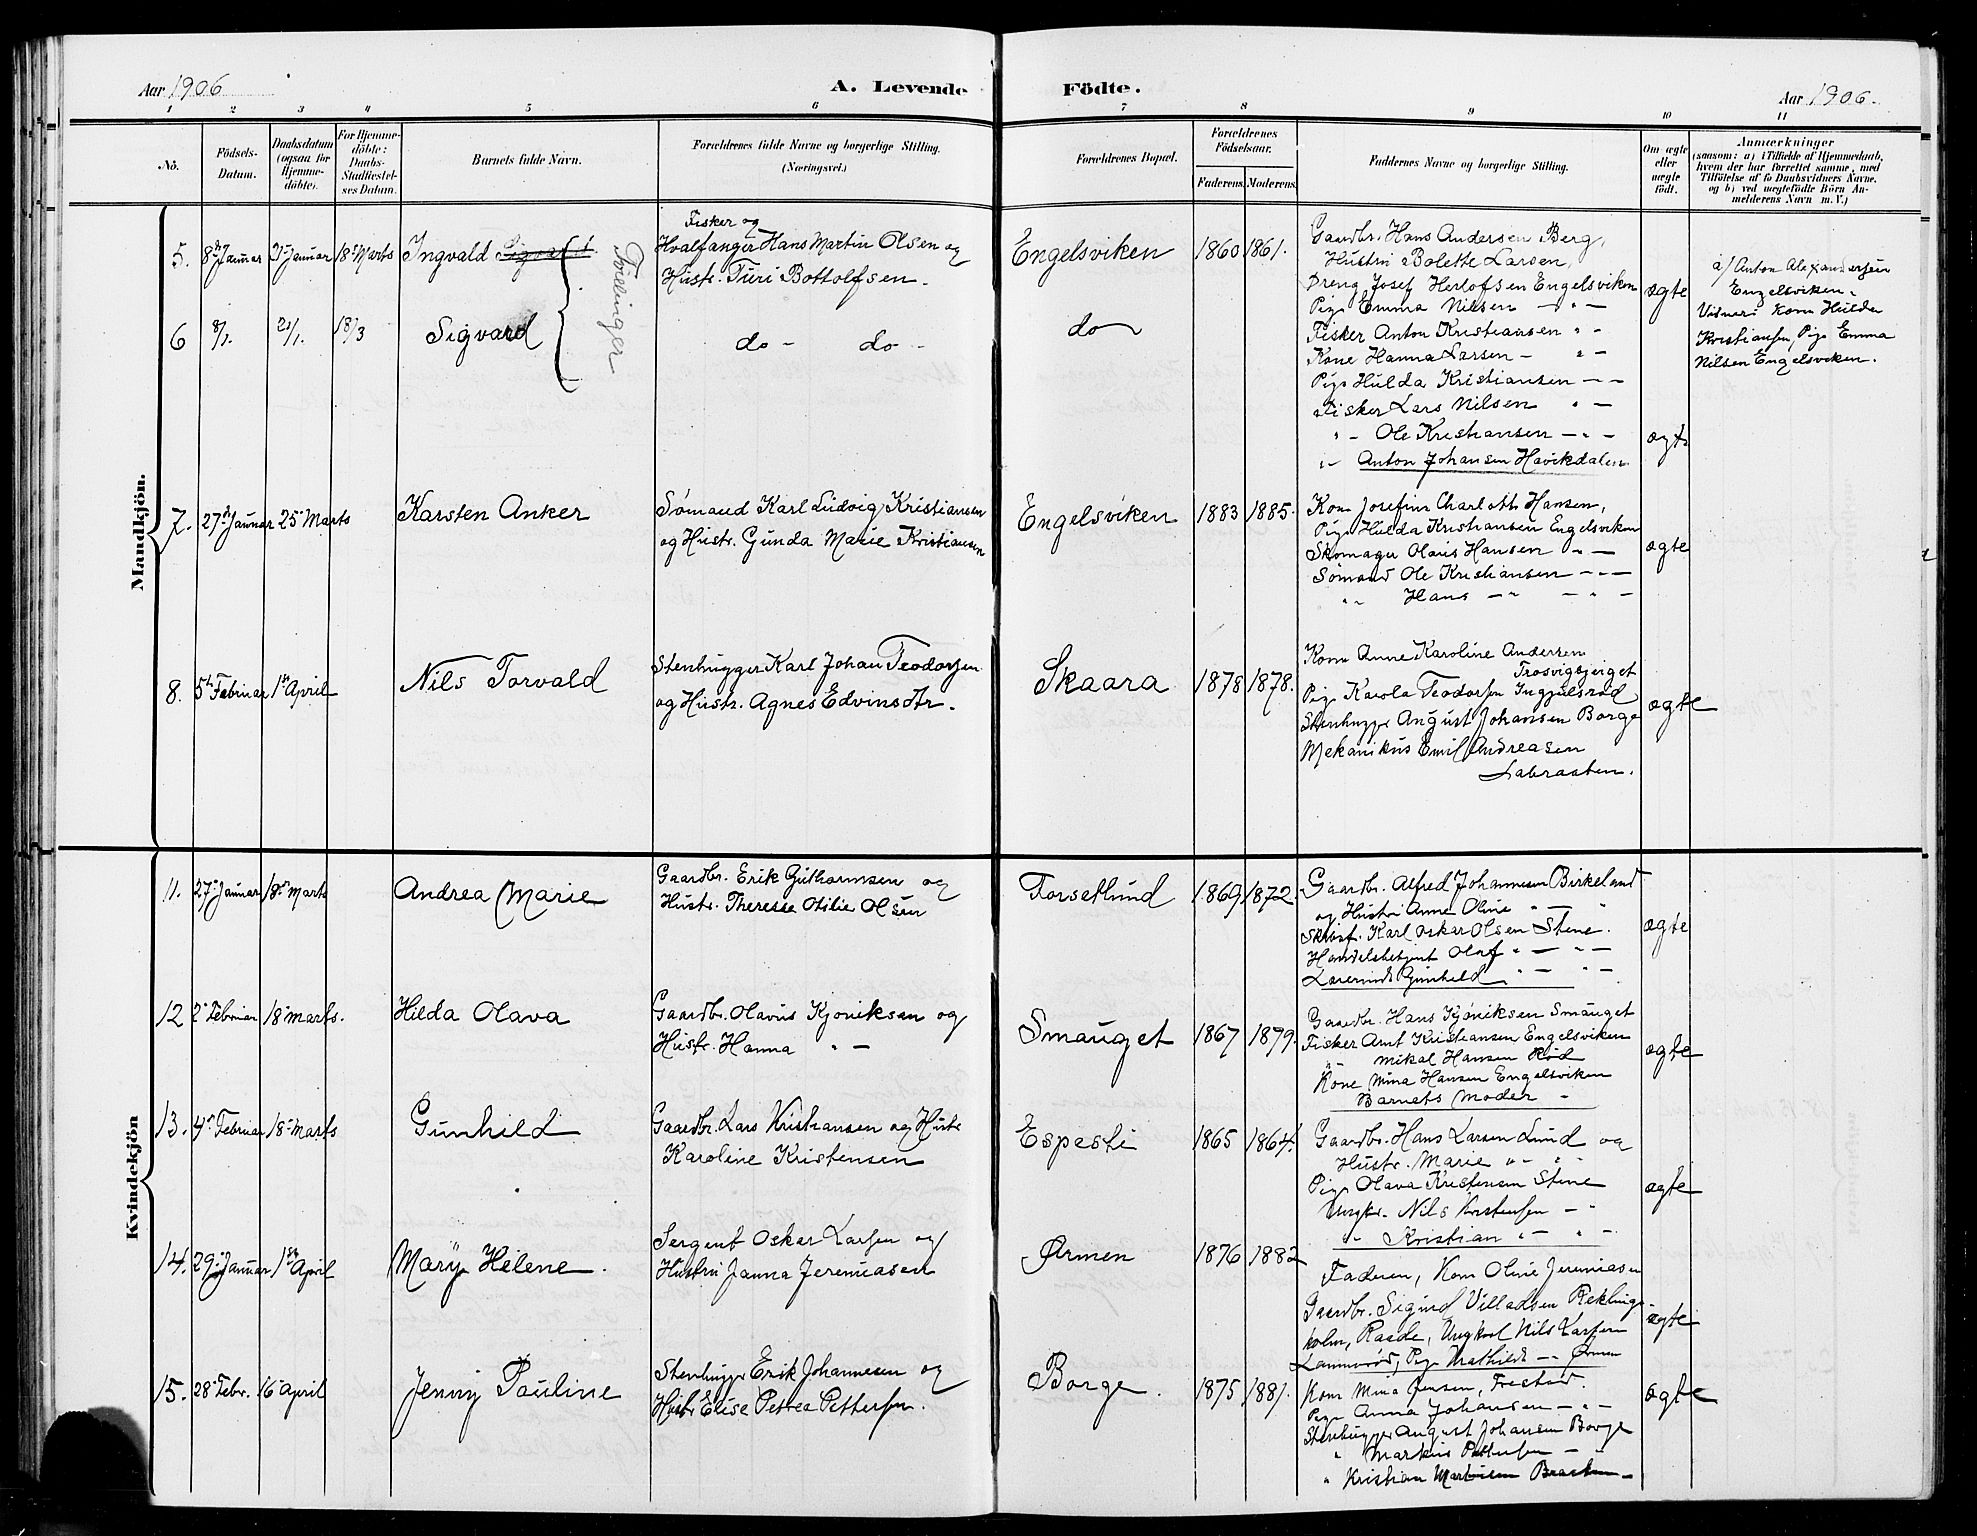 Aar 1906
A. Levende
Födte.
Aar 1906.
1 2 3 4 5 6 7 8 9 10 11
Nò.
Födsels-
Datum.
Daabsdatum
(ogsaa for
Hjemme-
döbte).
For Hjemme-
döbte:
Daabs-
Stadfæstel-
ses Datum.
Barnets fulde Navn.
Forældrenes fulde Navne og borgerlige Stilling.
(Næringsvei.)
Forældrenes Bopæl.
Forældrenes
Födselsaar.
Faderens. Moderens.
Faddernes Navne og borgerlige Stilling.
Om ægte
eller
uægte
födt.
Anmærkninger
(saasom: a) i Tilfælde af Hjemmedaab,
hvem der har forrettet samme, med
Tilföielse af to Daabsvidners Navne.
og b) ved uægtefödte Börn An-
melderens Navn m. V.)
Mandkjön.
5. 8de Januar 21 Januar 18de Marts Ingvald Sigvard
Tvillinger
Fisker og
Hvalfanger Hans Martin Olsen og
Hustr. Turi Bottolfsen.
Engelsviken 1860 1861.
Gaardbr. Hans Andersen Berg,
Hustru Bolette Larsen,
Dreng Josef Herlofsen Engelsviken
Pige Emma Nilsen — " —
Fisker Anton Kristiansen " —
Kone Hanna Larsen — " —
Pige Hulda Kristiansen — —
Fisker Lars Nilsen " —
" — Ole Kristiansen — " —
" — Anton Johansen Havikdalen
ægte
ægte
a/ Anton Alexandersen
Engelsviken.
Vidner: Kone Hulda
Kristiansen, Pige Emma
Nilsen Engelsviken.
6 8/1. 21/1. 18/3 Sigvard
do — do —
do
7. 27de Januar 25 Marts Karsten Anker
Sømand Karl Ludvig Kristiansen
og Hustr. Gunda Marie Kristiansen
Engelsviken 1883 1885.
Kone Josefine Charlotte Hansen,
Pige Hulda Kristiansen Engelsviken
Skomager Olaus Hansen " —
Sømand Ole Kristiansen — " —
" " Hans — " — " —
ægte
8. 5te Februar 1ste April Nils Torvald
Stenhugger Karl Johan Teodorsen
og Hustr. Agnes Edvinsdtr.
Skaara 1878 1878.
Kone Anne Karoline Andersen
Trosvigbjerget
Pige Karola Teodorsen Ingjulsrød
Stenhugger August Johansen Borge
Mekanikus Emil Andreasen
Labraaten.
ægte
Kvindekjön
11. 27de Januar 18de Marts Andrea Marie
Gaardbr. Erik Guthormsen og
Hustr. Therese Otilie Olsen
Forsetlund 1869 1872.
Gaardbr. Alfred Johannesen Birkeland
og Hustru Anne Oline " — "
Skibsf. Karl Oskar Olsen Stene.
Handelsbetjent Olaf " — " —
Lærerinde Gunhild " — " —
ægte
12 2 Februar 18 Marts. Hilda Olava
Gaardbr. Olavus Kjöniksen og
Hustr. Hanna " —
Smauget 1867 1879.
Gaardbr. Hans Kjöniksen Smauget
Fisker Arnt Kristiansen Engelsviken
" Mikal Hansen Rød
Kone Mina Hansen Engelsviken
Barnets Moder —
ægte
13. 4de Februar 18 Marts Gunhild
Gaardbr. Lars Kristiansen og Hustr.
Karoline Kristensen
Espesti 1865 1864.
Gaardbr. Hans Larsen Lund og
Hustr. Marie " — " —
Pige Olava Kristensen Stene
Ungkr. Nils Kristensen — "
" Kristian " — " —
ægte
14. 29de Januar 1ste April Mary Helene.
Sergent Oskar Larsen og
Hustru Janna Jeremiasen
Ørmen 1876 1882
Faderen, Kone Oline Jeremiasen
Gaardbr. Sigurd Villadsen Reklings-
holm, Raade, Ungkarl Nils Larsen
Lammerød, Pige Mathilde — Ørmen
ægte
15. 28 Febr. 16 April Jenny Pauline
Stenhugger Erik Johannesen og
Hustr Elise Petrea Pettersen.
Borge. 1875 1881.
Kone Mina Jensen, Frestad.
Pige Anna Johansen — " —
Stenhugger August Johansen Borge
" Markus Pettersen — "
" Kristian Martinsen Braaten —
ægte